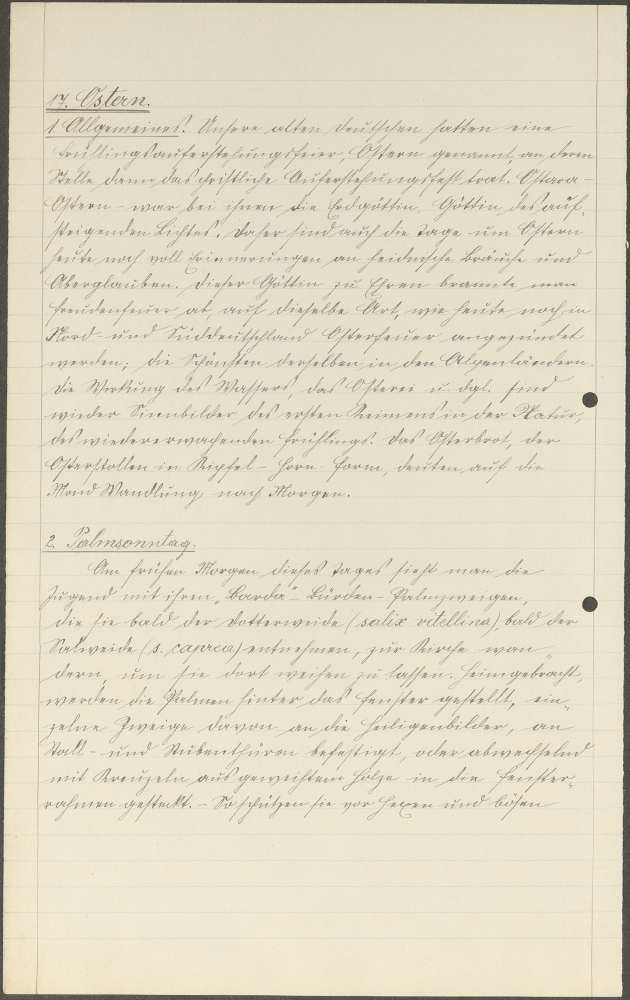 17. Ostern.
1. Allgemeines. Unsere alten Deutschen hatten eine
Frühlingsauferstehungsfeier, Ostern genannt, an deren
Stelle dann das christliche Auferstehungsfest trat. Ostara -
Ostern - war bei ihnen die Erdgöttin, Göttin des auf-
steigenden Lichtes. Daher sind auch die Tage um Ostern
heute noch voll Erinnerungen an heidnische Bräuche und
Aberglauben. Dieser Göttin zu Ehren brannte man
Freudenfeuer ab, auf dieselbe Art, wie heute noch in
Nord- und Süddeutschland Osterfeuer angezündet
werden; die Schönsten derselben in den Alpenländern.
Die Wirkung des Wassers, das Osterei u. dgl. sind
wieder Sinnbilder des ersten Keimens in der Natur,
des wiedererwachenden Frühlings. Das Osterbrot, der
Osterstollen in Kipfel- Horn- form, deuten auf die
Mond Wandlung nach Morgen.
2. Palmsonntag.
Am frühen Morgen dieses Tages sieht man die
Jugend mit ihren "Barda" - Bürden - Palmzweigen,
die sie bald der Dotterweide (salix vitellina) bald der
Salweide (s. caprea) entnehmen, zur Kirche wan-
dern, um sie dort weihen zu lassen. Heimgebracht,
werden die Palmen hinter das Fenster gestellt, ein-
zelne Zweige davon an die Heiligenbilder, an
Stall- und Stubenthüren befestigt, oder abwechselnd
mit Kreuzeln aus geweihtem Holze in die Fenster-
rahmen gesteckt. - So schützen sie vor Hexen und bösen